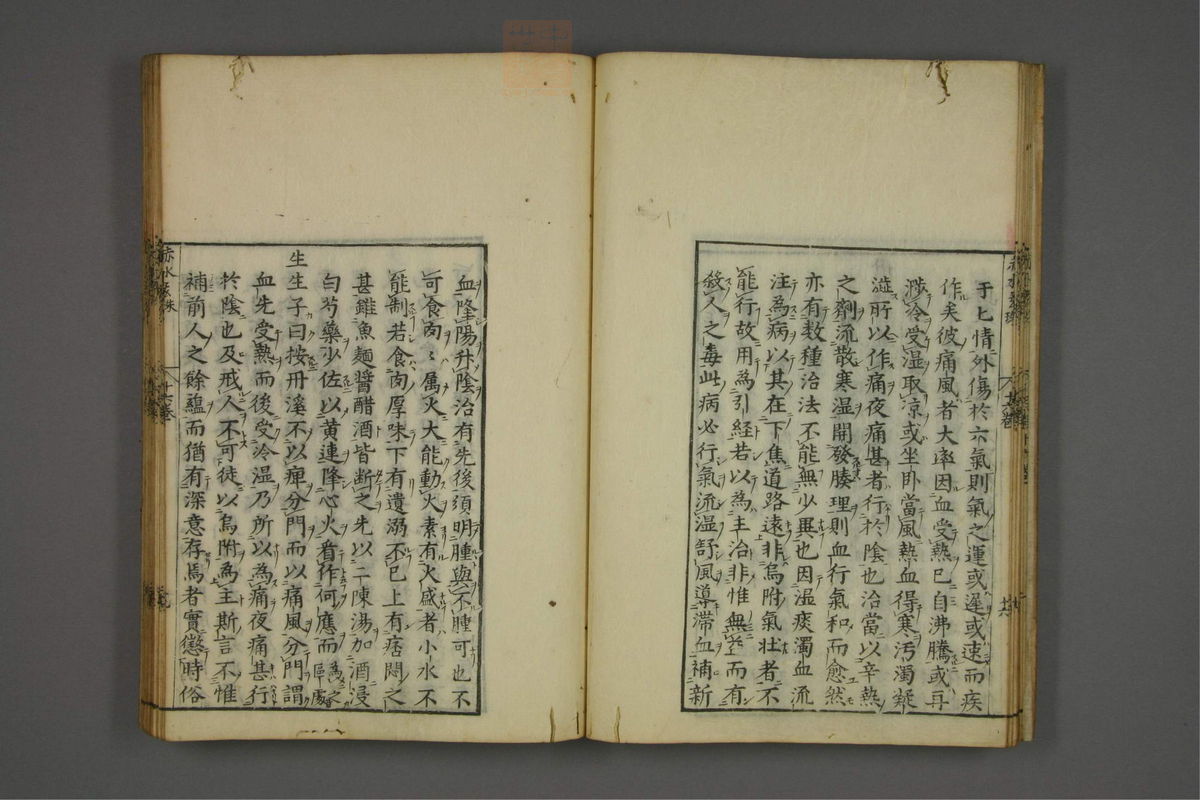 于七情外傷於六氣則氣之運或遲或速而疾
作矣彼痛風者大率因血受熱已自沸騰或再
渉冷受湿取凉或坐卧當風熱血得寒汚濁凝
澁所以作痛夜痛甚者行於陰也治當以辛熱
之劑流散寒湿開發腠理則血行氣和而愈然
亦有数種治法不能無少異也因湿痰濁血流
注為病以其在下焦道路遠非烏附氣壮者不
能行故用為引経若以為主治非惟無益而有
殺人之毒此病必行氣流湿舒風導滞血補新
血隆陽升陰治有先後須明腫與不腫可也不
可食肉〻属火大能動火素有火盛者小水不
能制若食肉厚味下有遺溺不已上有痞悶之
甚雖魚麺醬醋酒皆断之先以二陳湯加酒浸
白芍藥少佐以黄連降心火看作何應而為之區處
生生子曰按丹溪不以痺分門而以痛風分門謂
血先受熱而後受冷湿乃所以為痛夜痛甚行
於陰也及戒人不可徒以烏附為主斯言不惟
補前人之餘蘊而猶有深意存焉者實懲時俗
赤水玄珠